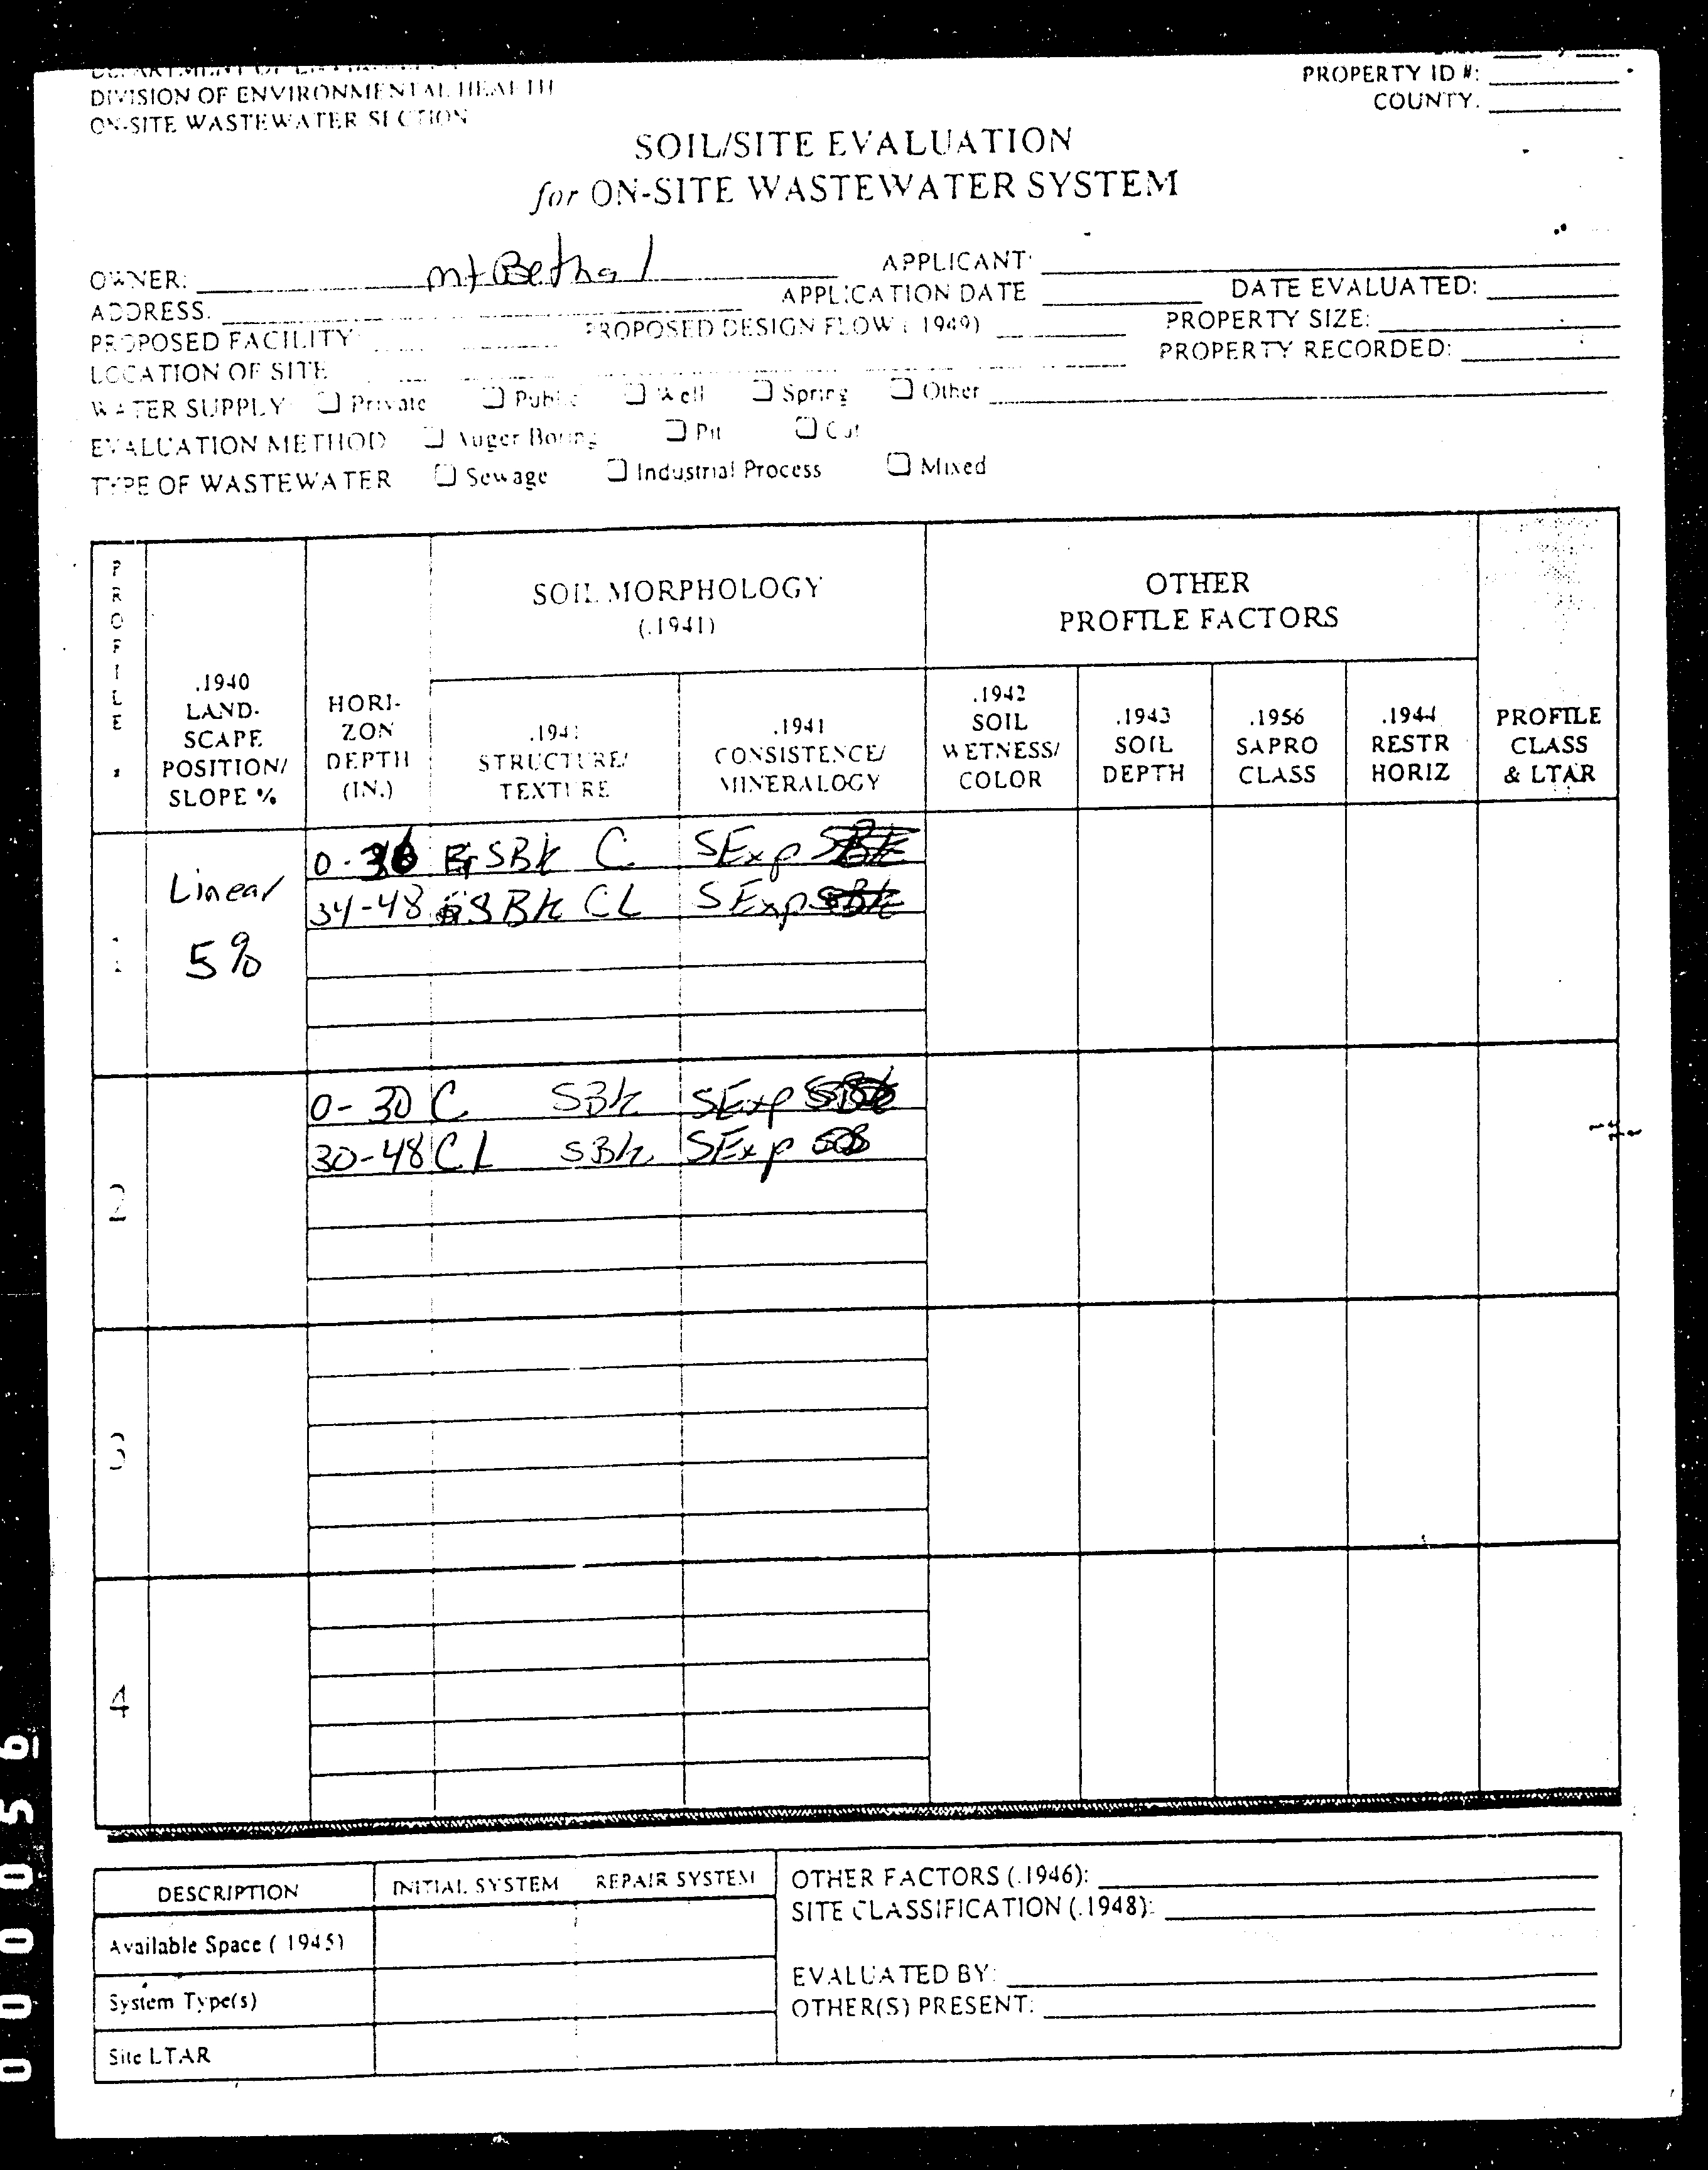 DIVISION OF ENVIRONMENTAL HEALTH
ON-SITE WASTEWATER SECTION
PROPERTY ID #:
COUNTY:
SOIL/SITE EVALUATION
for ON-SITE WASTEWATER SYSTEM
OWNER: mt Bethal APPLICANT:
ADDRESS: APPLICATION DATE DATE EVALUATED:
PROPOSED FACILITY PROPOSED DESIGN FLOW (.1949) PROPERTY SIZE:
LOCATION OF SITE PROPERTY RECORDED:
WATER SUPPLY Private Public Well Spring Other
EVALUATION METHOD Auger Boring Pit Cut
TYPE OF WASTEWATER Sewage Industrial Process Mixed
PROFILE
.1940 LAND-SCAPE POSITION/ SLOPE %
HORI-ZON DEPTH (IN.)
SOIL MORPHOLOGY
(.1941)
.1941 STRUCTURE/ TEXTURE
.1941 CONSISTENCE/ MINERALOGY
OTHER
PROFILE FACTORS
.1942 SOIL WETNESS/ COLOR
.1943 SOIL DEPTH
.1956 SAPRO CLASS
.1944 RESTR HORIZ
PROFILE CLASS & LTAR
Linear
5%
SBk C SExp
34-48 SBk CL SExp
2
0-30 C SBk SExp
30-48 CL SBk SExp
3
4
DESCRIPTION INITIAL SYSTEM REPAIR SYSTEM
Available Space (.1945)
System Type(s)
Site LTAR
OTHER FACTORS (.1946):
SITE CLASSIFICATION (.1948):
EVALUATED BY:
OTHER(S) PRESENT:
000056